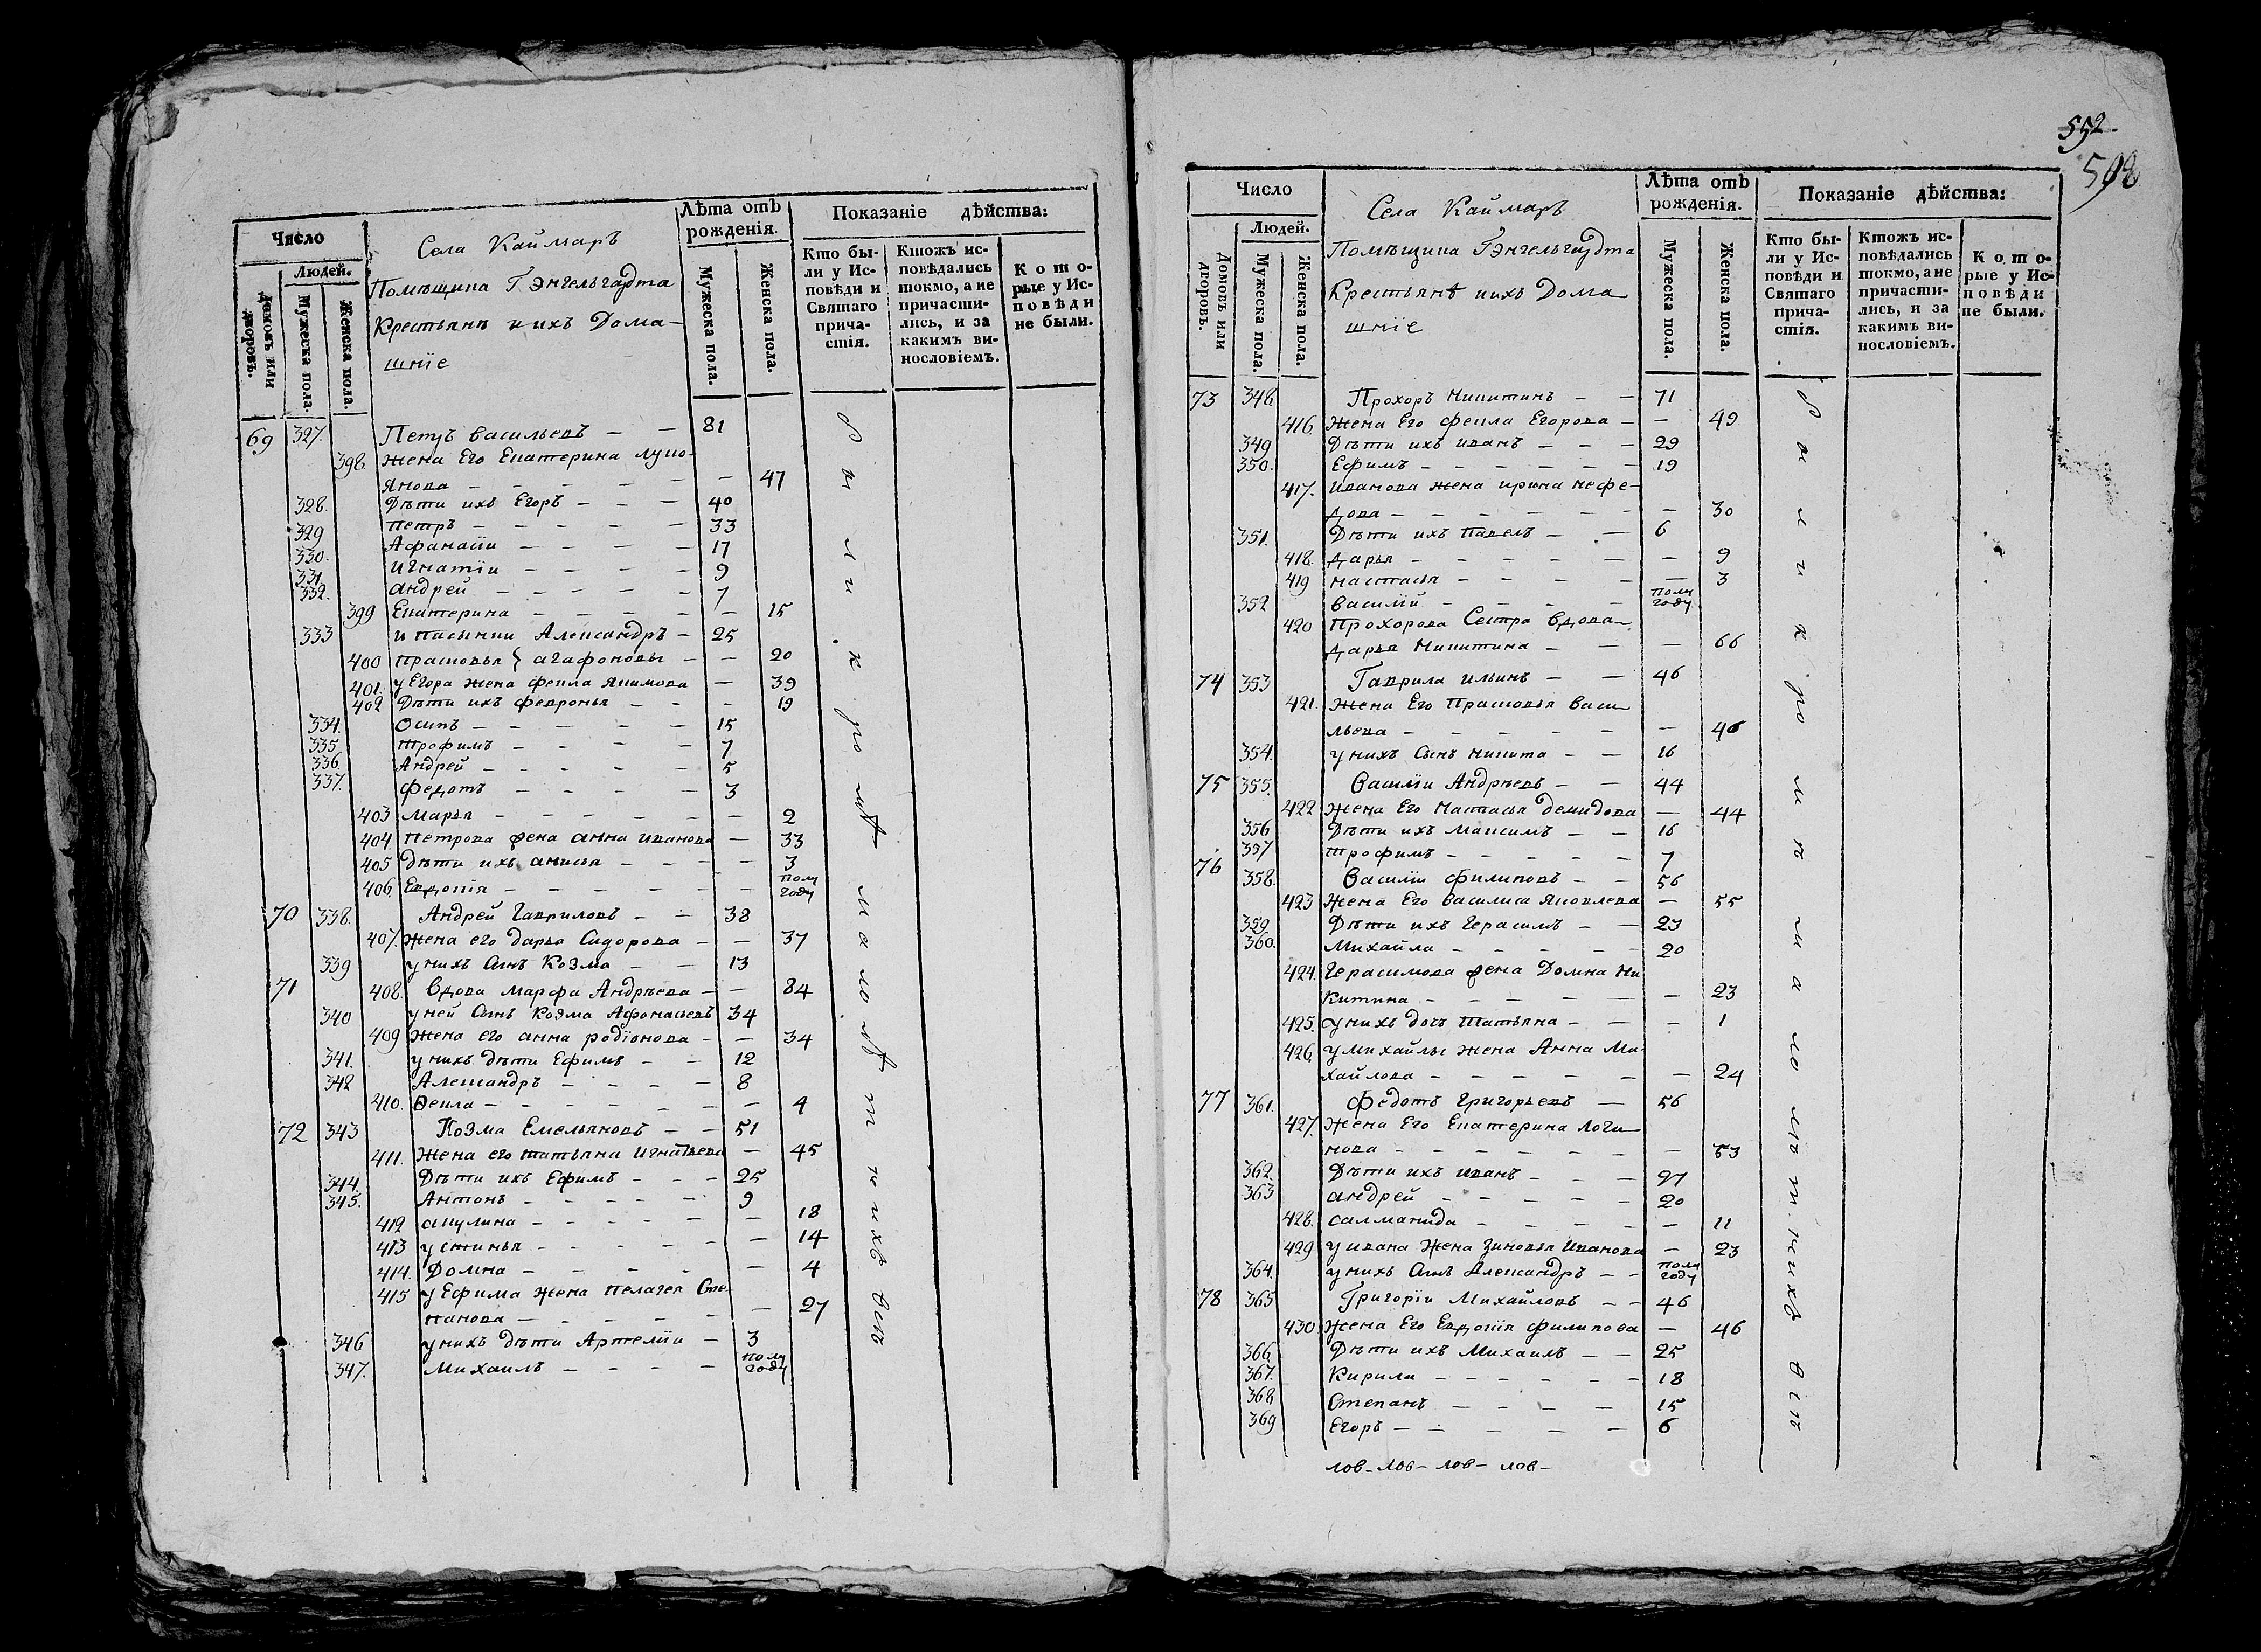 552.
Число
Села Каймаръ
Лѣта отъ
рожденія.
Показаніе дѣйства:
Людей.
Помѣщика Г Энгельгардта
Крестьянѣ и ихъ Дома-
шніе
Домовъ или
дворовъ.
Мужеска пола.
Женска пола.
Мужеска пола.
Женска пола.
Кто бы-
ли у Ис-
повѣди и
Святаго
прича-
стія.
Ктожъ ис-
повѣдались
токмо, а не
причасти-
лись, и за
какимъ ви-
нословіемъ.
Кото-
рые у Ис-
повѣди
не были.
69 327. Петръ васильевъ — — 81
398. жена Его Екатерина луко-
янова — — — 47
328. Дѣти ихъ Егоръ — — — 40
329 петръ — — — 33
330. Афанасіи — — — 17
331. игнатіи — — — 9
332. андрей — — — 7
399 Екатерина — — — 15
333 и пасынки Александръ — 25
400 прасковья } агафоновы — — 20
401. у Егора жена фекла якимова — 39
402 Дѣти ихъ февронья — — — 19
334. Осипъ — — — 15
335. трофимъ — — — 7
336. Андрей — — — 5
337. федотъ — — — 3
403 марья — — — 2
404. петрова жена анна иванова — 33
405 дѣти ихъ анисья — — — 3
406. Евдокія — — — полу
году
70 338. Андрей гавриловъ — — 38
407. жена его дарья Сидорова — — 37
339 у нихъ Сынъ Козма — — 13
71 408. Вдова марфа Андрѣева — — 84
340 у ней Сынъ Козма Афонасьевъ 34
409 жена его анна родіонова — — 34
341. у нихъ дѣти Ефимъ — — 12
342 Александръ — — — 8
410. Фекла — — — 4
72 343 Козма Емельяновъ — — 51
411. жена его татьяна игнатьева — 45
344. Дѣти ихъ Ефимъ — — — 25
345. Антонъ — — — 9
412 акулина — — — 18
413 устинья — — — 14
414. Домна — — — 4
415 у Ефима жена пелагея Сте-
панова — — — 27
346 у нихъ дѣти Артеміи — 3
347. михаилъ — — — полу
году
Число
Села Каймаръ
Лѣта отъ
рожденія.
Показаніе дѣйства:
Людей.
Помѣщика Г Энгельгардта
Крестьянѣ и ихъ Дома
шніе
Домовъ или
дворовъ.
Мужеска пола.
Женска пола.
Мужеска пола.
Женска пола.
Кто бы-
ли у Ис-
повѣди и
Святаго
прича-
стія.
Ктожъ ис-
повѣдались
токмо, а не
причасти-
лись, и за
какимъ ви-
нословіемъ.
Кото-
рые у Ис-
повѣди
не были.
73 348. Прохоръ никитинъ — — 71
416. жена Его фекла Егорова — — 49
349 Дѣти ихъ иванъ — — — 29
350. Ефимъ — — — 19
417. иванова жена ирина нефе-
дова — — — 30
351. Дѣти ихъ павелъ — — 6
418. дарья — — — 9
419 настасья — — — 3
352 василій — — — полу
году
420 прохорова Сестра вдова
дарья никитина — — — 66
74 353 Гаврила ильинъ — — 46
421. жена Его прасковья васи
льева — — — 46
354. у нихъ Сынъ никита — — 16
75 355. Василіи Андрѣевъ — — 44
422 жена Его настасья демидова — 44
356 Дѣти ихъ максимъ — — 16
357 трофимъ — — — 7
76 358. Василіи филиповъ — — 56
423 жена Его василиса яковлева — 55
359. Дѣти ихъ герасимъ — — 23
360. михайла — — — 20
424. герасимова жена Домна ни
китина — — — 23
425. у нихъ дочь татьяна — — — 1
426. у михайлы жена Анна ми-
хайлова — — — 24
77 361. федотъ григорьевъ — 56
427. жена Его Екатерина логи
нова — — — 53
362. Дѣти ихъ иванъ — — — 27
363 андрей — — — 20
428. салманида — — — 11
429 у ивана жена зиновья иванова — 23
364. у нихъ Сынъ Александръ — — полу
году
78 365 Григоріи михайловъ — — 46
430 жена Его Евдокія филипова — 46
366. Дѣти ихъ михаилъ — — 25
367. Кирила — — — 18
368. Степанъ — — — 15
369 Егоръ — — — 6
лов - лов - лов - лов -